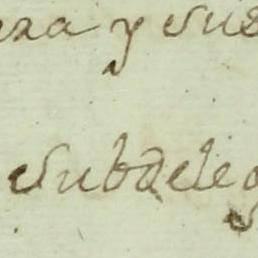 eza y sus
Subdele